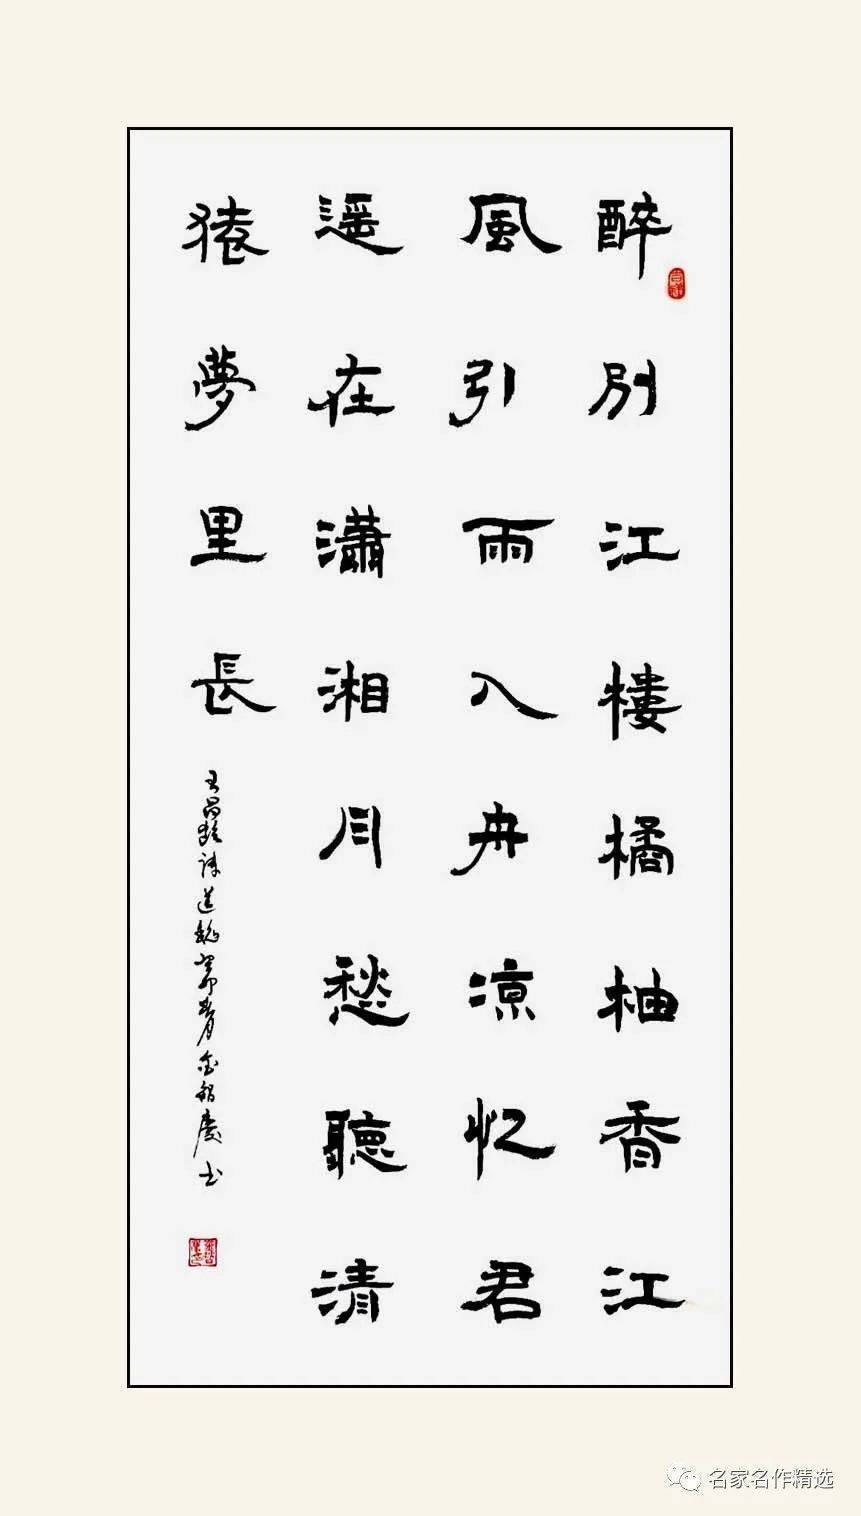 醉別江樓橘柚香江
風引雨入舟涼忆君
遥在瀟湘月愁聽清
猿夢里長
王昌龄诗送魏
慶书
名家名作精选